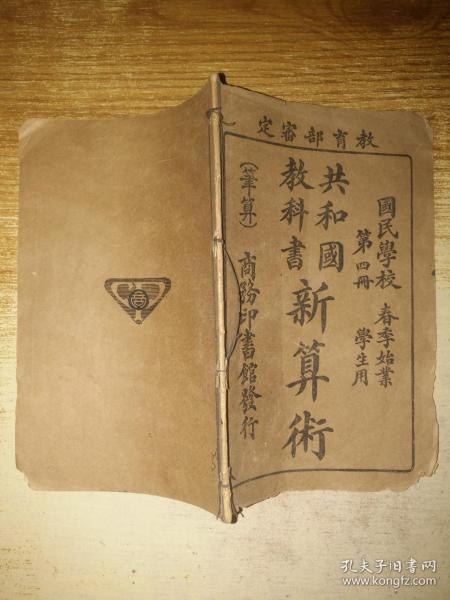 教育部審定
國民學校 春季始業
第四冊 學生用
共和國
教科書
新算術
(筆算)
商務印書館發行
商
孔夫子旧书网
www.kongfz.com